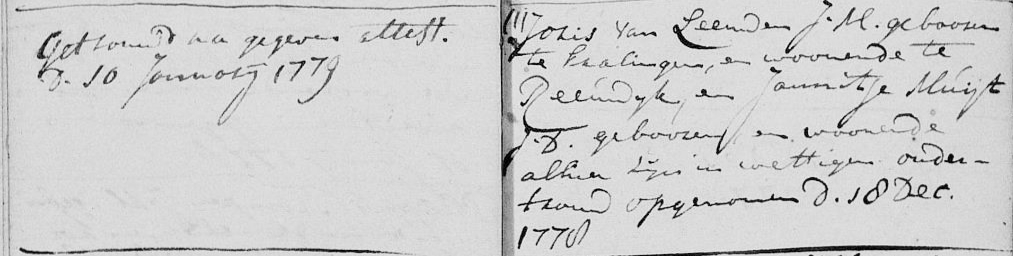 Getrouwd na gegeven attest.
d. 10 January 1779
Joris van Leenden J:M. geboren
te Kralingen, en woonende te
Reeuwyk, en Jannitje Muijt
J.D. geboren en woonende
alhier zijn in wettigen onder-
trouw opgenomen d. 18 Dec.
1778